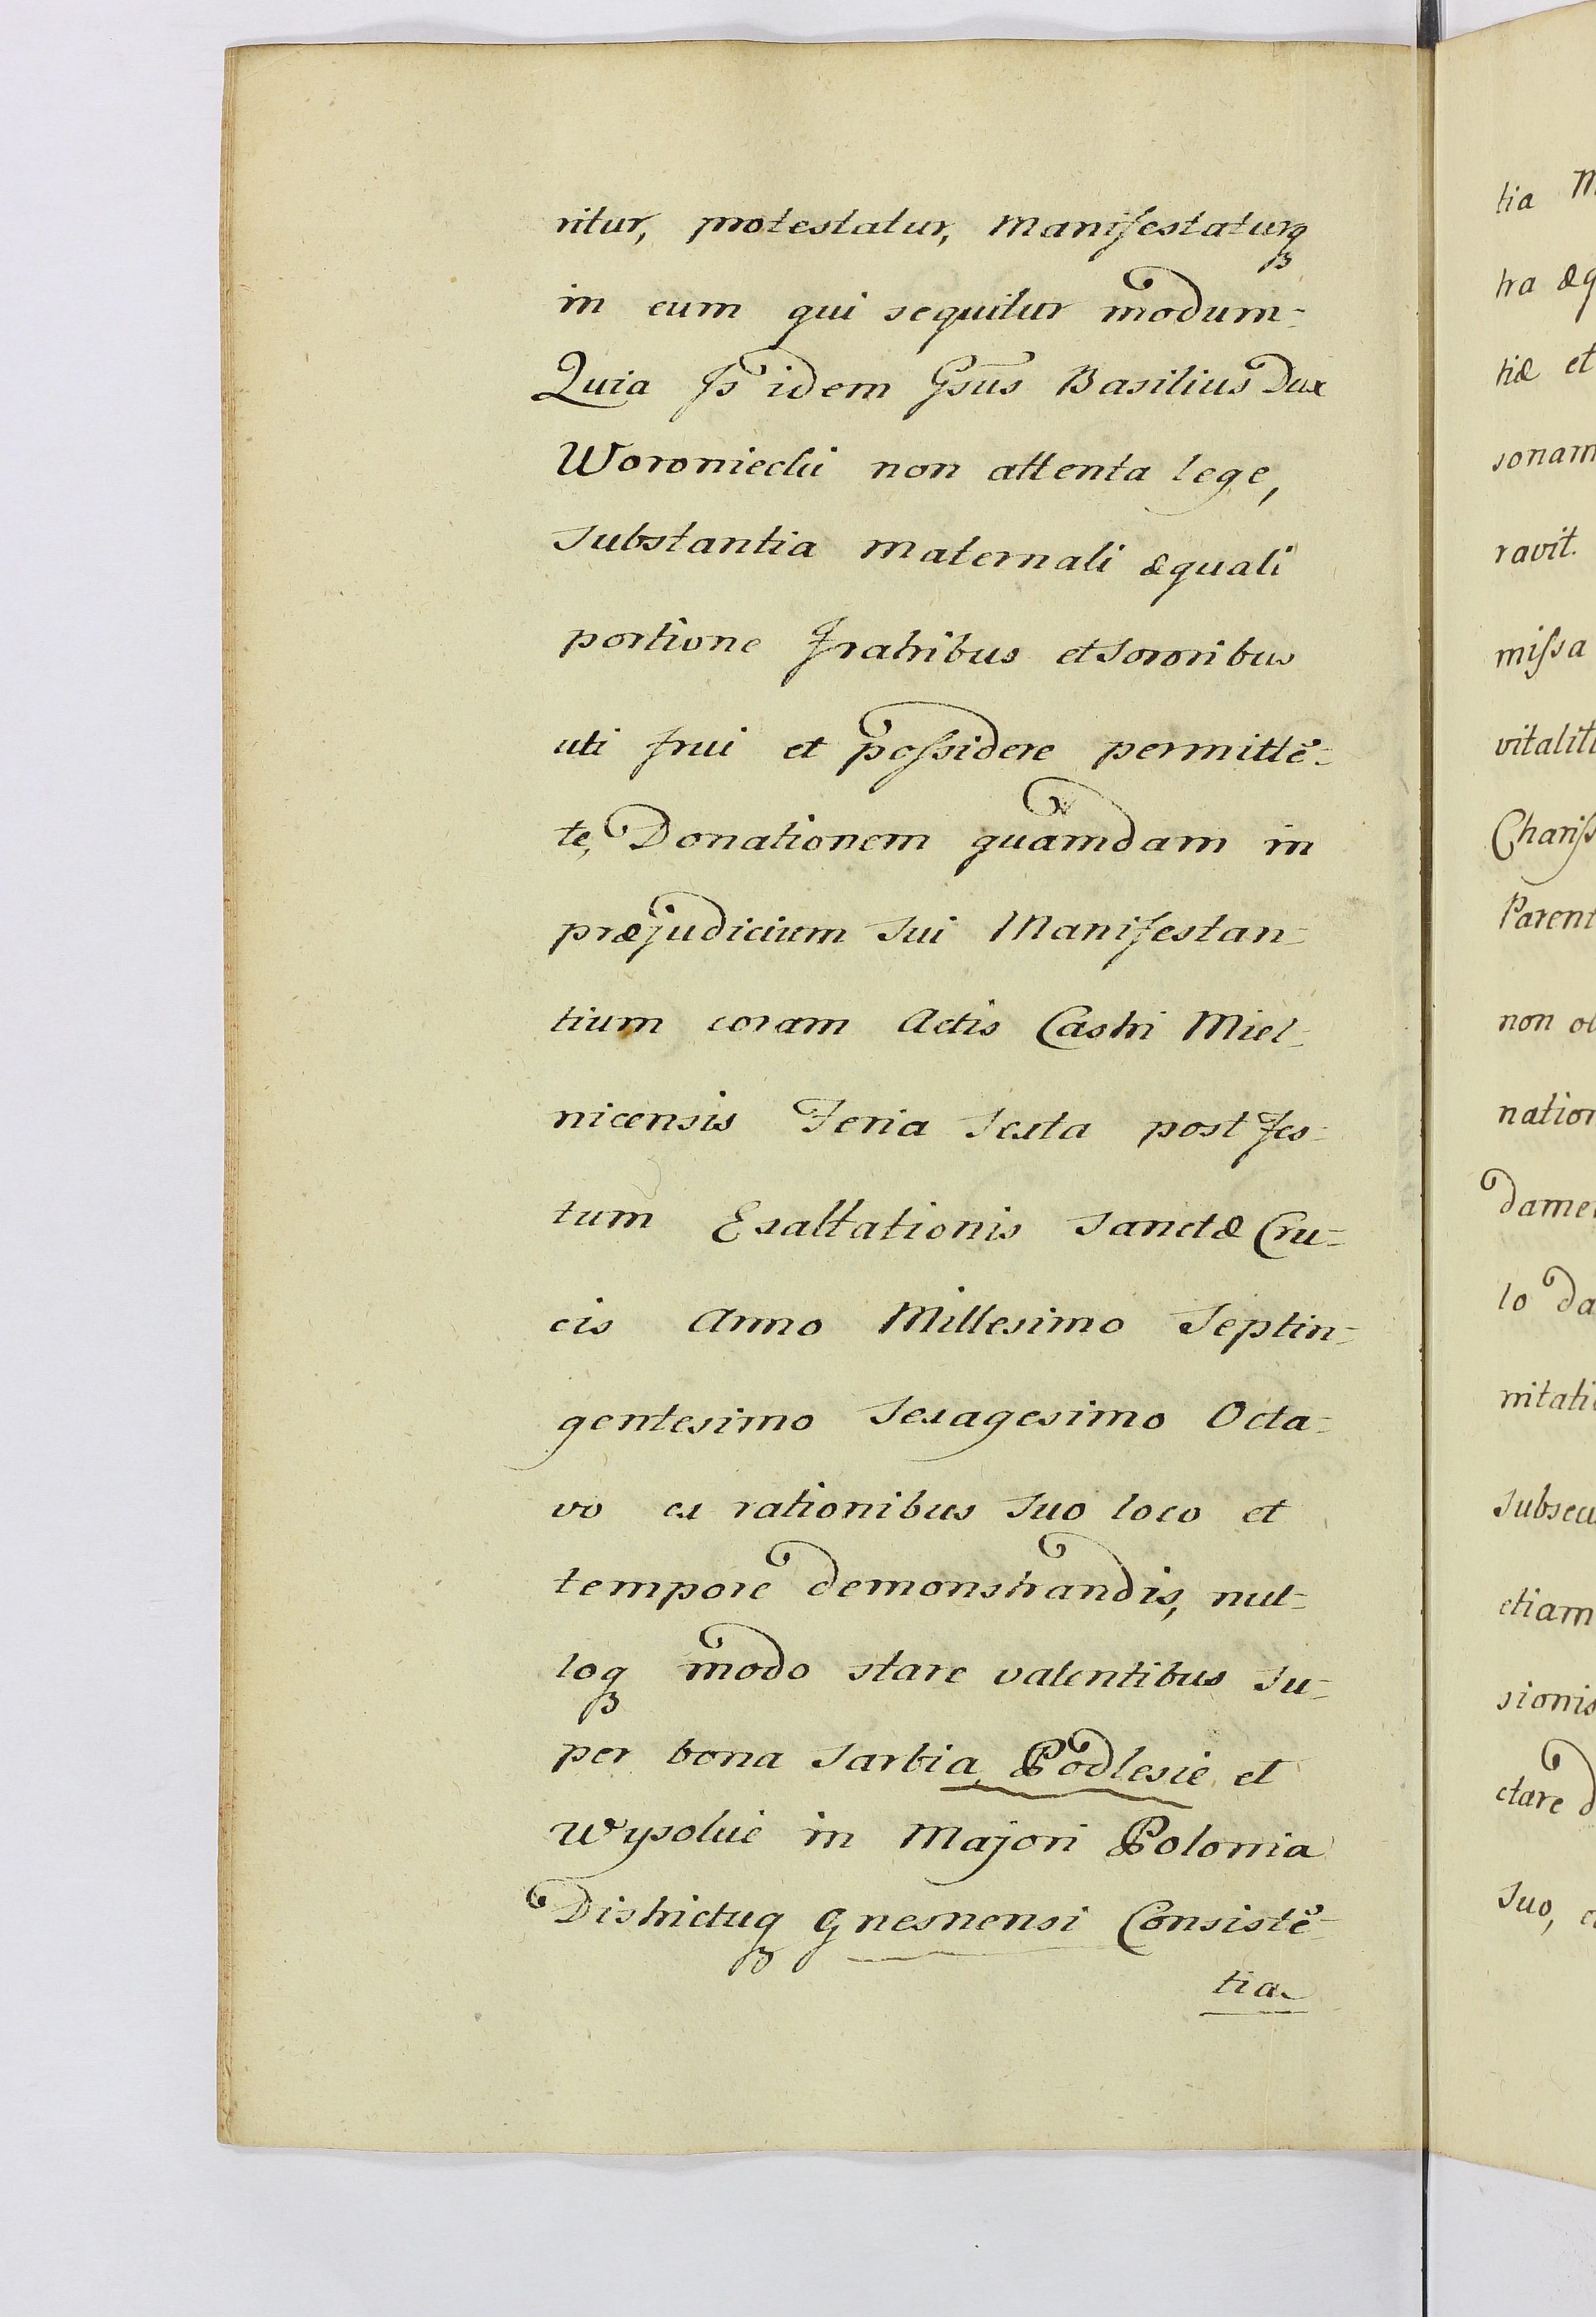 ritur, protestatur, Manifestaturq₃
in eum qui sequitur modum =
Quia Is idem Gsus Basilius Dux
Woroniecki non attenta lege,
Substantia Maternali æquali
portione Fratribus et Sororibus
uti frui et possidere permittē=
te, Donationem quamdam in
præjudicium Sui Manifestan=
tium coram Actis Castri Miel=
nicensis Feria Sexta post fes=
tum Exaltationis Sanctæ Cru=
cis Anno Millesimo Septin=
gentesimo Sexagesimo Octa=
vo ex rationibus Suo loco et
tempore demonstrandis, nul=
loq₃ modo stare valentibus Su=
per bona Sarbia, Podlesie et
Wysokie in Majori Polonia
Districtuq₃ Gnesnensi Consistē=
tia
tia
tra æq
tiæ et
sonam
ravit.
missa
vitalit
Chariss
Parent
non ob
nation
dame
lo da
nitati
Subsecu
etiam
sionis
ctare d
Suo,